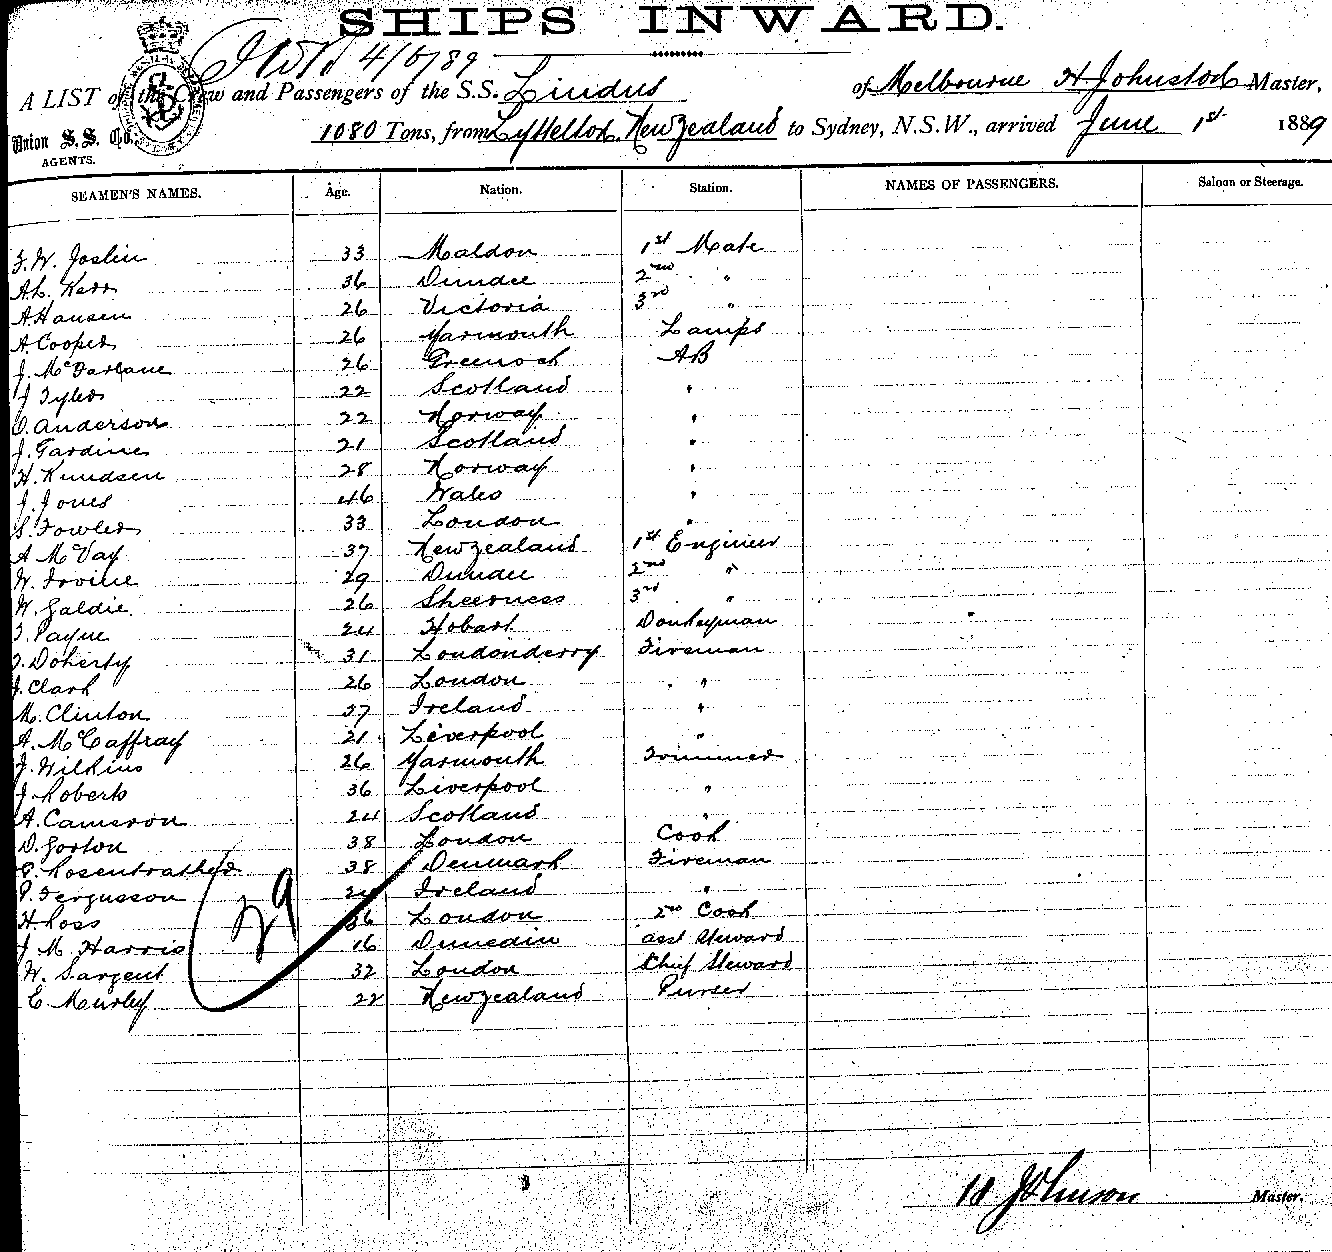 SHIPS INWARD.
4/6/89
A LIST of the Crew and Passengers of the S.S. Lindus of Melbourne H Johnston Master,
Union S.S. Co. 1080 Tons, from Lyttelton New Zealand to Sydney, N.S.W., arrived June 1st 1889
AGENTS.
SEAMEN'S NAMES. Age. Nation. Station. NAMES OF PASSENGERS. Saloon or Steerage.
F. W. Joslin 33 Maldon 1st Mate
A L. Kerr 36 Dundee 2nd "
A Hansen 26 Victoria 3rd "
A. Cooper 26 Yarmouth Lamps
J. McFarlane 26 Greenock AB
J Tyler 22 Scotland "
O. Anderson 22 Norway "
J. Gardiner 21 Scotland "
H. Knudsen 28 Norway "
J. Jones 46 Wales "
S. Fowler 33 London "
A McVay 37 New Zealand 1st Engineer
W. Irvine 29 Dundee 2nd "
W. Galdie 26 Sheerness 3rd "
T. Payne 24 Hobart Donkeyman
J. Doherty 31 Londonderry Fireman
J. Clark 26 London "
M. Clinton 37 Ireland "
A. McCaffray 21 Liverpool "
J. Wilkins 26 Yarmouth Trimmer
J. Roberts 36 Liverpool "
A. Cameron 24 Scotland "
D. Gorton 38 London Cook
E. Rosentrather 38 Denmark Fireman
P. Fergusson 24 Ireland "
H. Ross 36 London 2nd Cook
J M Harris 16 Dunedin asst Steward
W. Sargent 32 London Chief Steward
E Murley 22 New Zealand Purser
29
H Johnson Master.